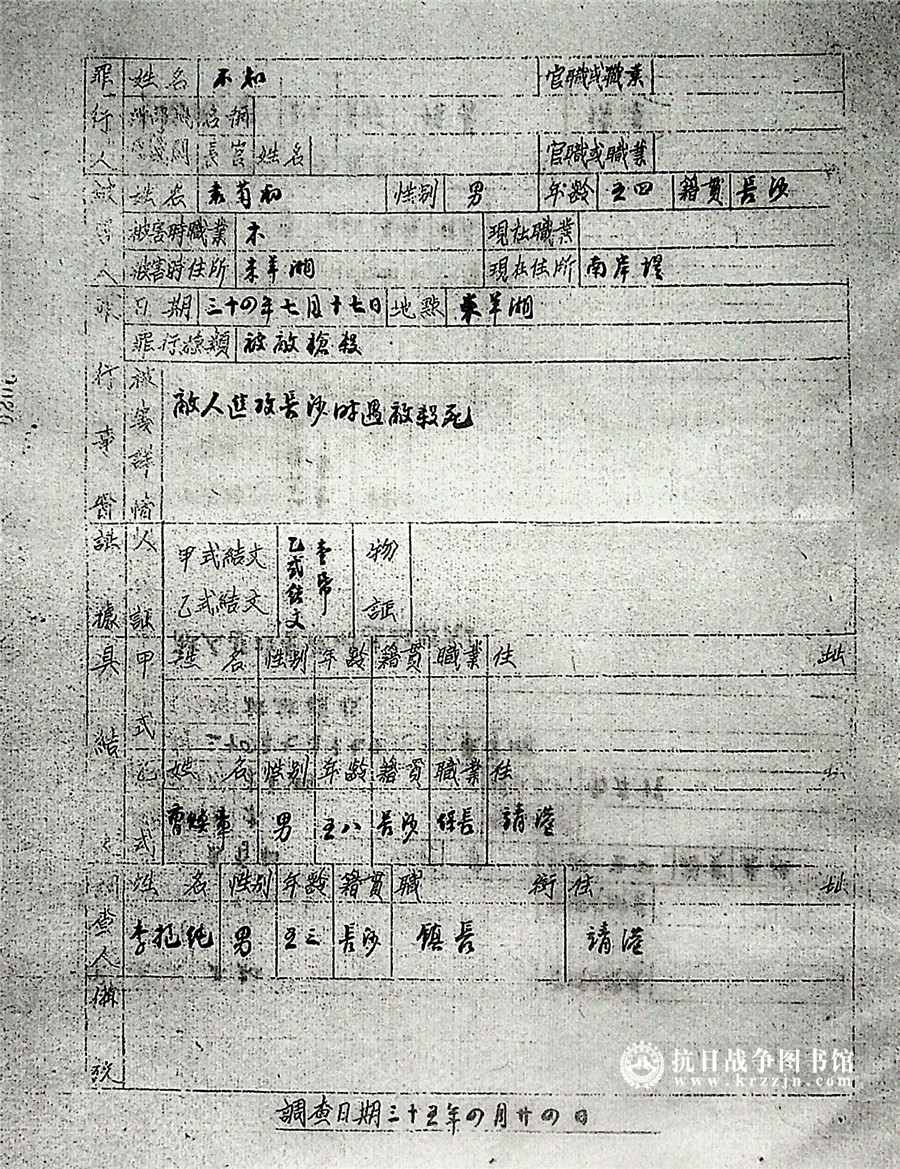 罪行人 姓名 不知 官職或職業
名稱
長官姓名 官職或職業
被害人 姓名 性别 男 年齡 五四 籍貫 長沙
被害時職業 現在職業
被害時住所 現在住所 南岸堤
罪行事實 日期 三十四年七月十七日 地點
罪行種類 被敵槍殺
被害詳情 敵人進攻長沙時遇敵殺死
証據 人証 甲式結文 乙式結文 乙式結文 壹帋 物証
具結 甲式 姓名 性别 年齡 籍貫 職業 住址
乙式 姓名 性别 年齡 籍貫 職業 住址
男 五八 長沙 保長 靖港
調查人 姓名 性别 年齡 籍貫 職銜 住址
李 純 男 五三 長沙 鎮長 靖港
備攷
調查日期三十五年四月廿四日
抗日战争图书馆
www.krzzjn.com